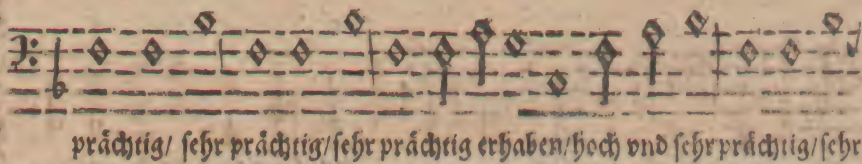 prächtig/ sehr prächtig/sehr prächtig erhaben/hoch vnd sehr prächtig/sehr